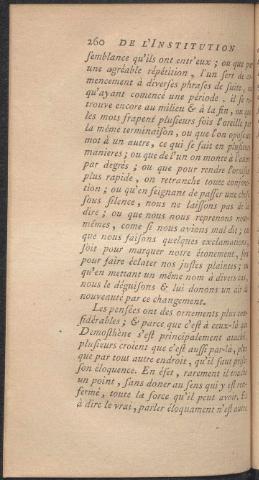 260 DE L'INSTITUTION
semblance qu'ils ont entr'eux ; ou que par
une agréable répétition, l'un sert de com-
mencement à diverses phrases de suite, ou
qu'ayant comencé une période, il se re-
trouve encore au milieu & à la fin, ou que
les mots frapent plusieurs fois l'oreille par
la même terminaison, ou que l'on opose un
mot à un autre, ce qui se fait en plusieurs
manieres ; ou que de l'un on monte à l'autre
par degrés ; ou que pour rendre l'oraison
plus rapide, on retranche toute conjonc-
tion ; ou qu'en feignant de passer une chose
sous silence, nous ne laissons pas de la
dire ; ou que nous nous reprenons nous-
mêmes, come si nous avions mal dit ; ou
que nous faisons quelques exclamations,
soit pour marquer notre étonement, soit
pour faire éclater nos justes plaintes ; ou
qu'en mettant un même nom à divers cas,
nous le déguisons & lui donons un air de
nouveauté par ce changement.
Les pensées ont des ornements plus con-
sidérables ; & parce que c'est à ceux-là que
Demosthène s'est principalement ataché,
plusieurs croient que c'est aussi par-là, plus
que par tout autre endroit, qu'il faut
son éloquence. En éfet, rarement il traite
un point, sans doner au sens qui y est ren-
fermé, toute la force qu'il peut avoir. Et
à dire le vrai, parler éloquament n'est autre